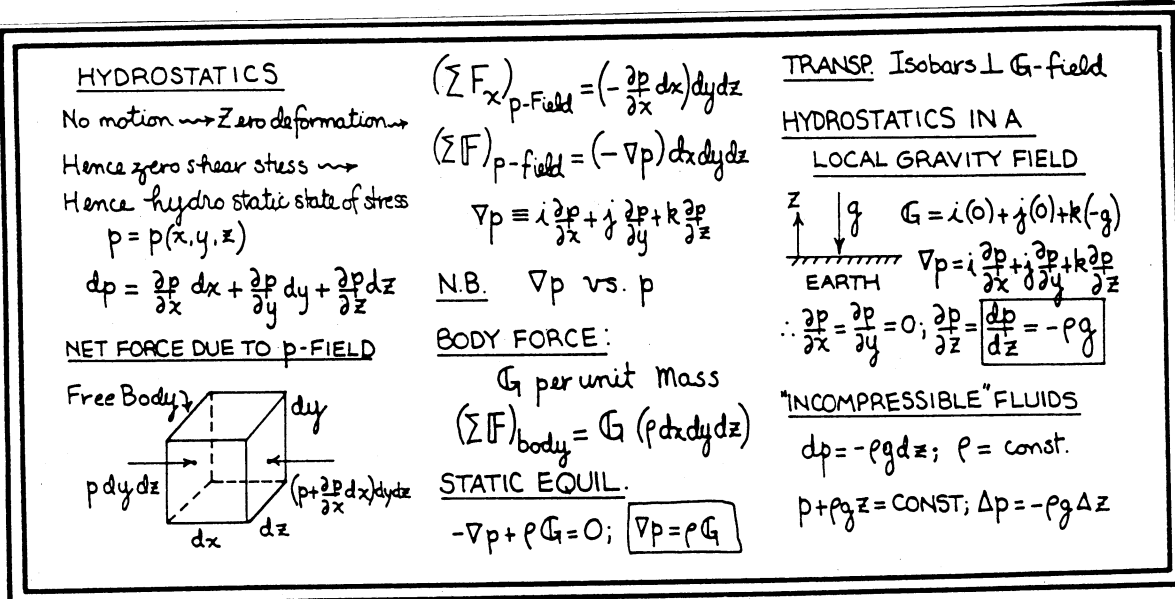 HYDROSTATICS
No motion ⇝ Zero deformation ⇝
Hence zero shear stess ⇝
Hence hydro static state of stress
p = p(x,y,z)
dp = ∂p/∂x dx + ∂p/∂y dy + ∂p/∂z dz
NET FORCE DUE TO p-FIELD
Free Body
dy
p dy dz
(p+∂p/∂x dx)dydz
dx
dz
(ΣFx)p-Field = (-∂p/∂x dx)dydz
(Σ𝔽)p-field = (-∇p)dxdydz
∇p ≡ i ∂p/∂x + j ∂p/∂y + k ∂p/∂z
N.B. ∇p vs. p
BODY FORCE:
𝔾 per unit Mass
(Σ𝔽)body = 𝔾 (ρdxdydz)
STATIC EQUIL.
-∇p + ρ𝔾 = 0; ∇p = ρ𝔾
TRANSP. Isobars ⊥ 𝔾-field
HYDROSTATICS IN A
LOCAL GRAVITY FIELD
z
g
EARTH
𝔾 = i(0)+j(0)+k(-g)
∇p = i ∂p/∂x + j ∂p/∂y + k ∂p/∂z
∴ ∂p/∂x = ∂p/∂y = 0; ∂p/∂z = dp/dz = -ρg
"INCOMPRESSIBLE" FLUIDS
dp = -ρgdz; ρ = const.
p+ρgz = CONST; Δp = -ρgΔz